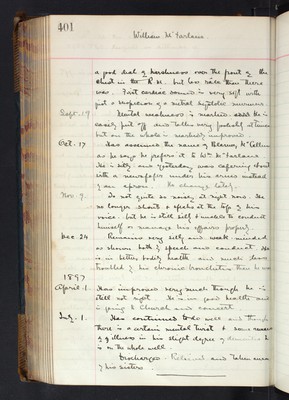 401
William McFarlane.
a good deal of harshness over the front of the
chest in the R. M. but less râle than there
was. First cardiac sound is very soft with
just a suspicion of a mitral systolic murmur.
Sept. 19 Mental weakness is marked still. He is
easily put off and talks very foolishly at times
but on the whole is markedly improved.
Oct. 17 Has assumed the name of
as he says he prefers it to Wm McFarlane.
He is silly and yesterday was capering about
with a newspaper under his arms instead
of an apron. No change lately.
Nov 9. Is not quite so noisy at night now. He
no longer shouts & speaks at the top of his
voice, but he is still silly & unable to conduct
himself or manage his affairs properly.
Dec 24 Remains very silly and weak-minded
as shown both by speech and conduct. He
is in better bodily health and much less
troubled by his chronic bronchitis than he was.
1897
April. 1. Has improved very much though he is
still not right. He is in good health and
is going to Church and concert.
July. 1. Has continued to do well and though
there is a certain mental twist & some
of illness in his slight degree of dementia he
is on the whole well.
Discharged - Relieved and taken away
by his sisters.